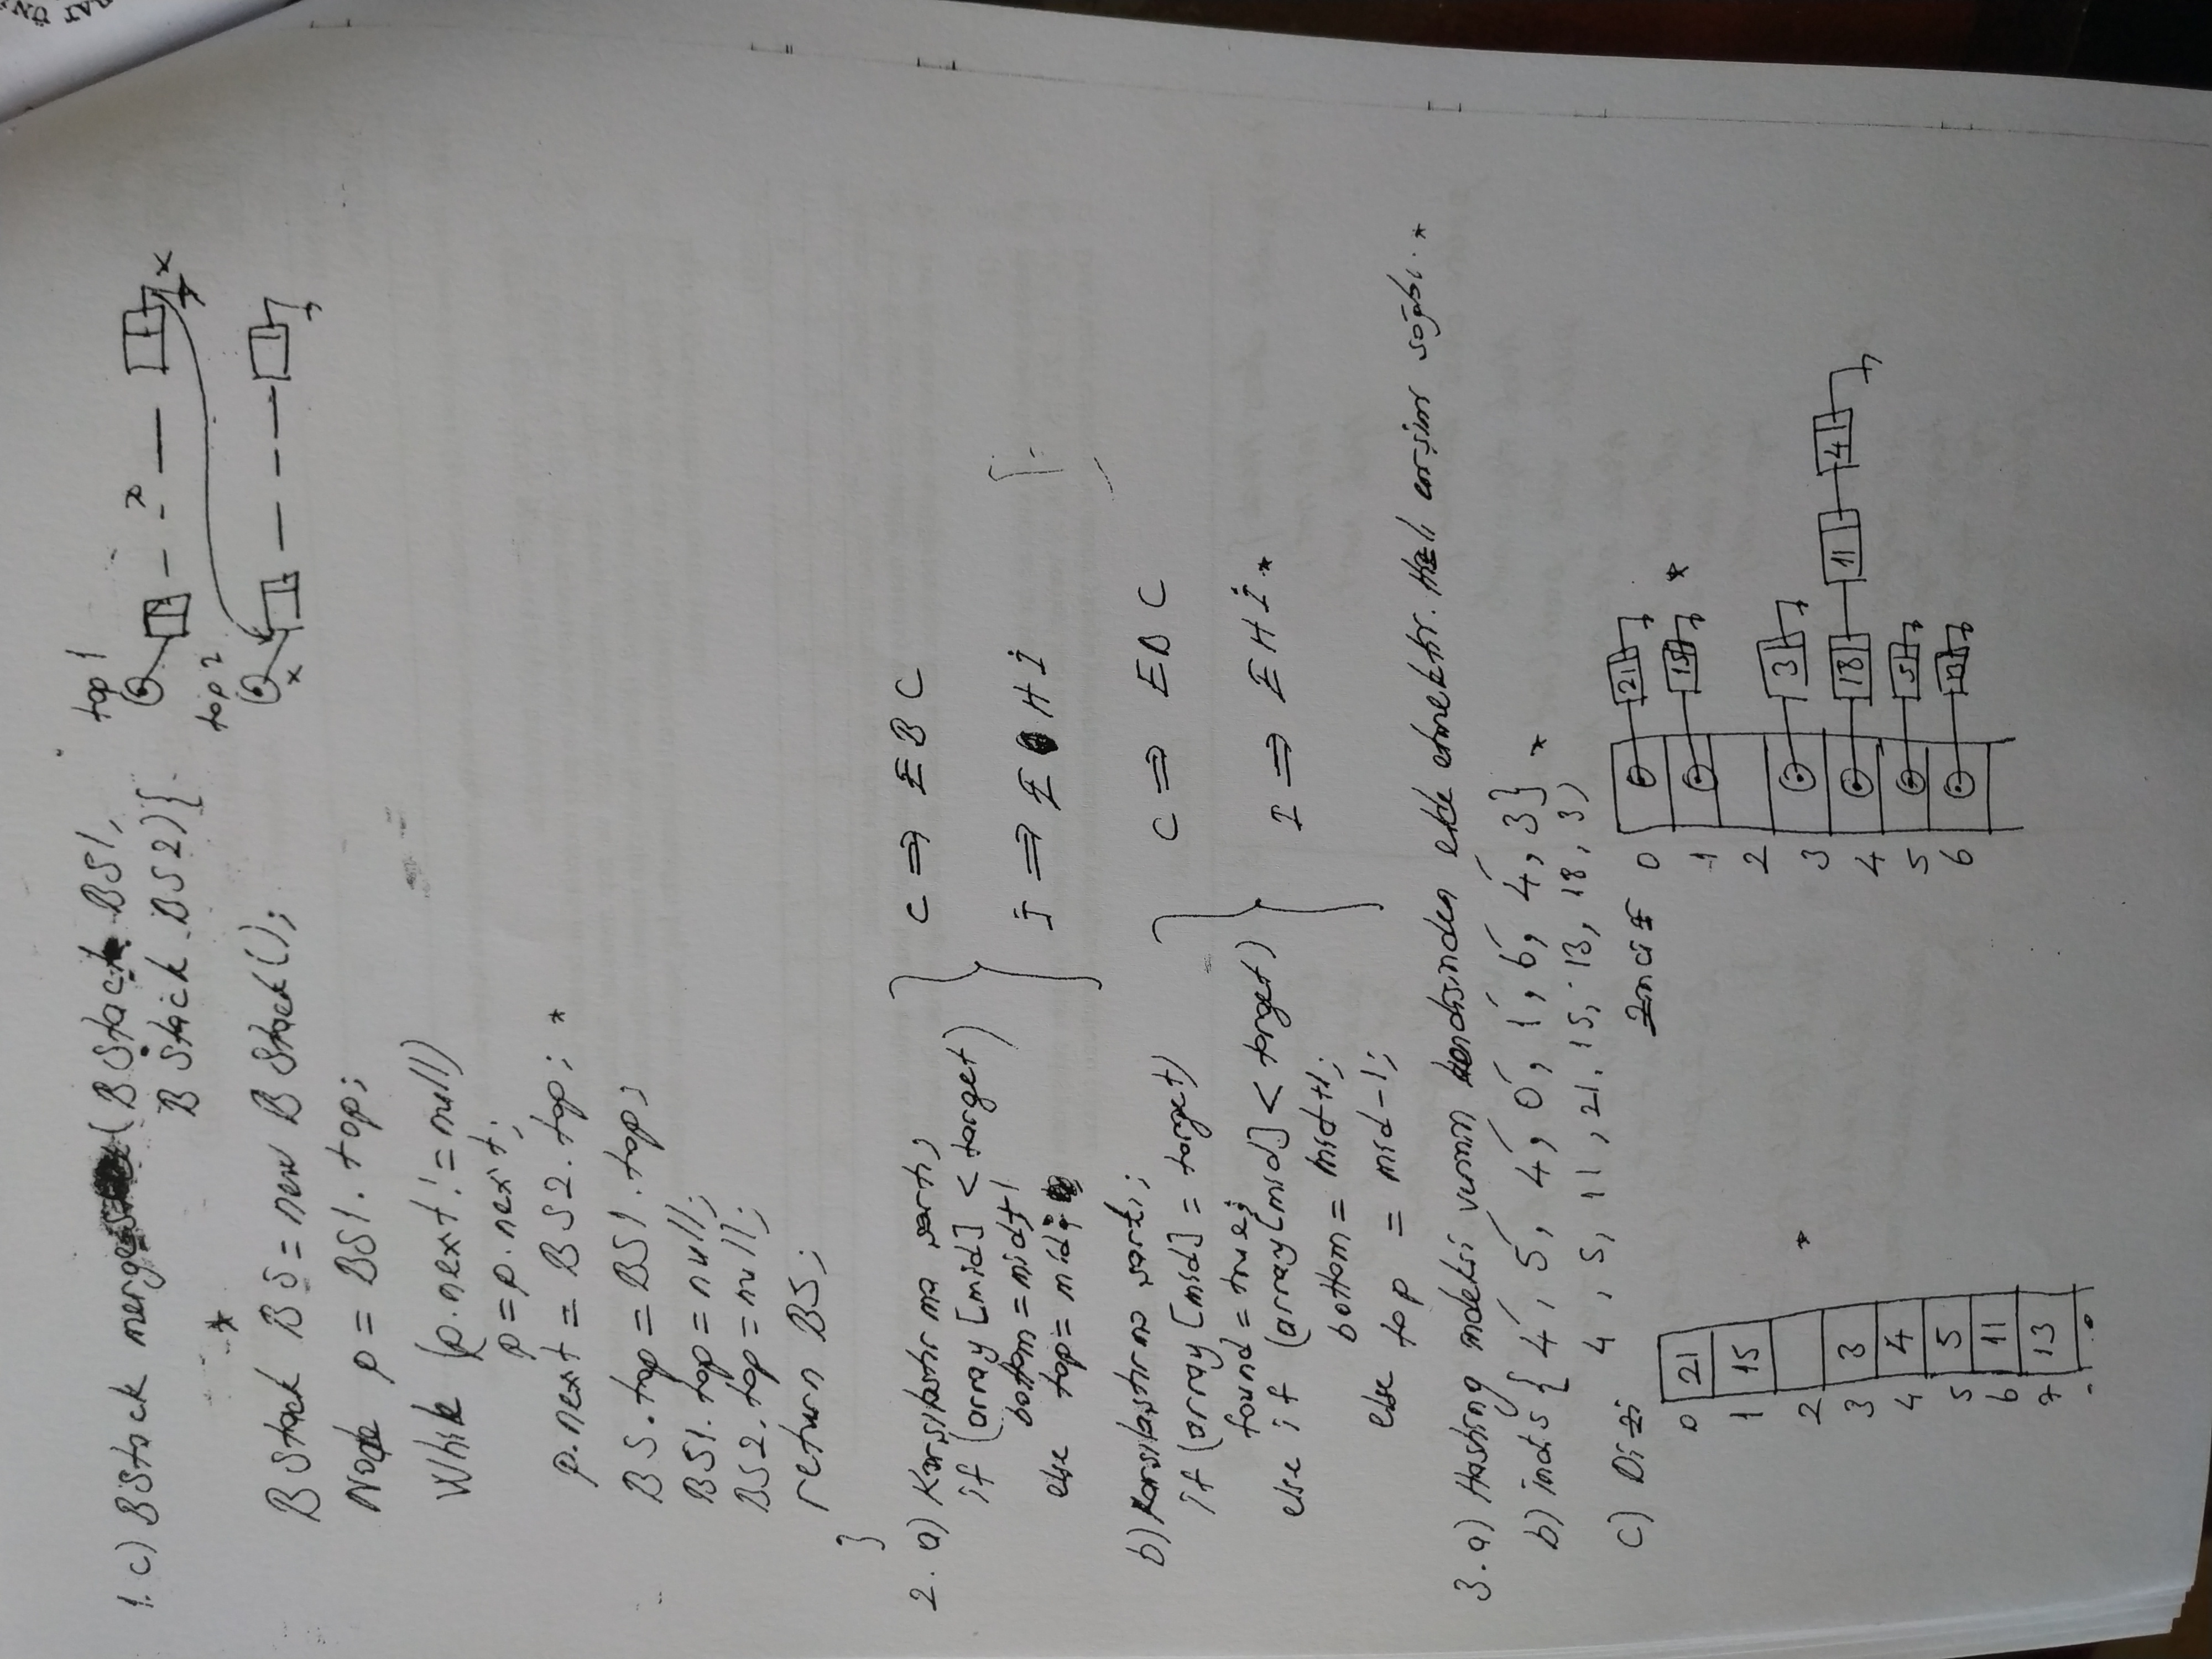 1. c) BStack merge (BStack BS1,
BStack BS2) {
*
BStack BS = new BStack();
Node p = BS1.top;
While (p.next != null)
p = p.next;
p.next = BS2.top; *
BS.top = BS1.top;
BS1.top = null;
BS2.top = null;
return BS;
}
top1
x
x
top2
x
2. a) Karşılaştırma sartı;
if (array[mid] < target)
bottom = mid+1
else top = mid;
C ⇒ E B C
I ⇒ E H İ
b) Karsılastırma sartı;
if (array[mid] = target)
found = true;
else if (array[mid] < target)
bottom = mid+1;
else top = mid-1;
C ⇒ E B C
I ⇒ E H İ *
3. a) Hashing indeksi verinin kendisinden elde etmektir. Hızlı erişim sağlar. *
b) inds { 4, 5, 4, 0, 1, 6, 4, 3 } *
4, 5, 11, 21, 15, 13, 18, 3
c) Dizi
0 21
1 15
2
3 3
4 4
5 5
6 11
7 13
*
Zincir
0 21
1 15
2
3 3
4 18 11 4
5 5
6 13
*